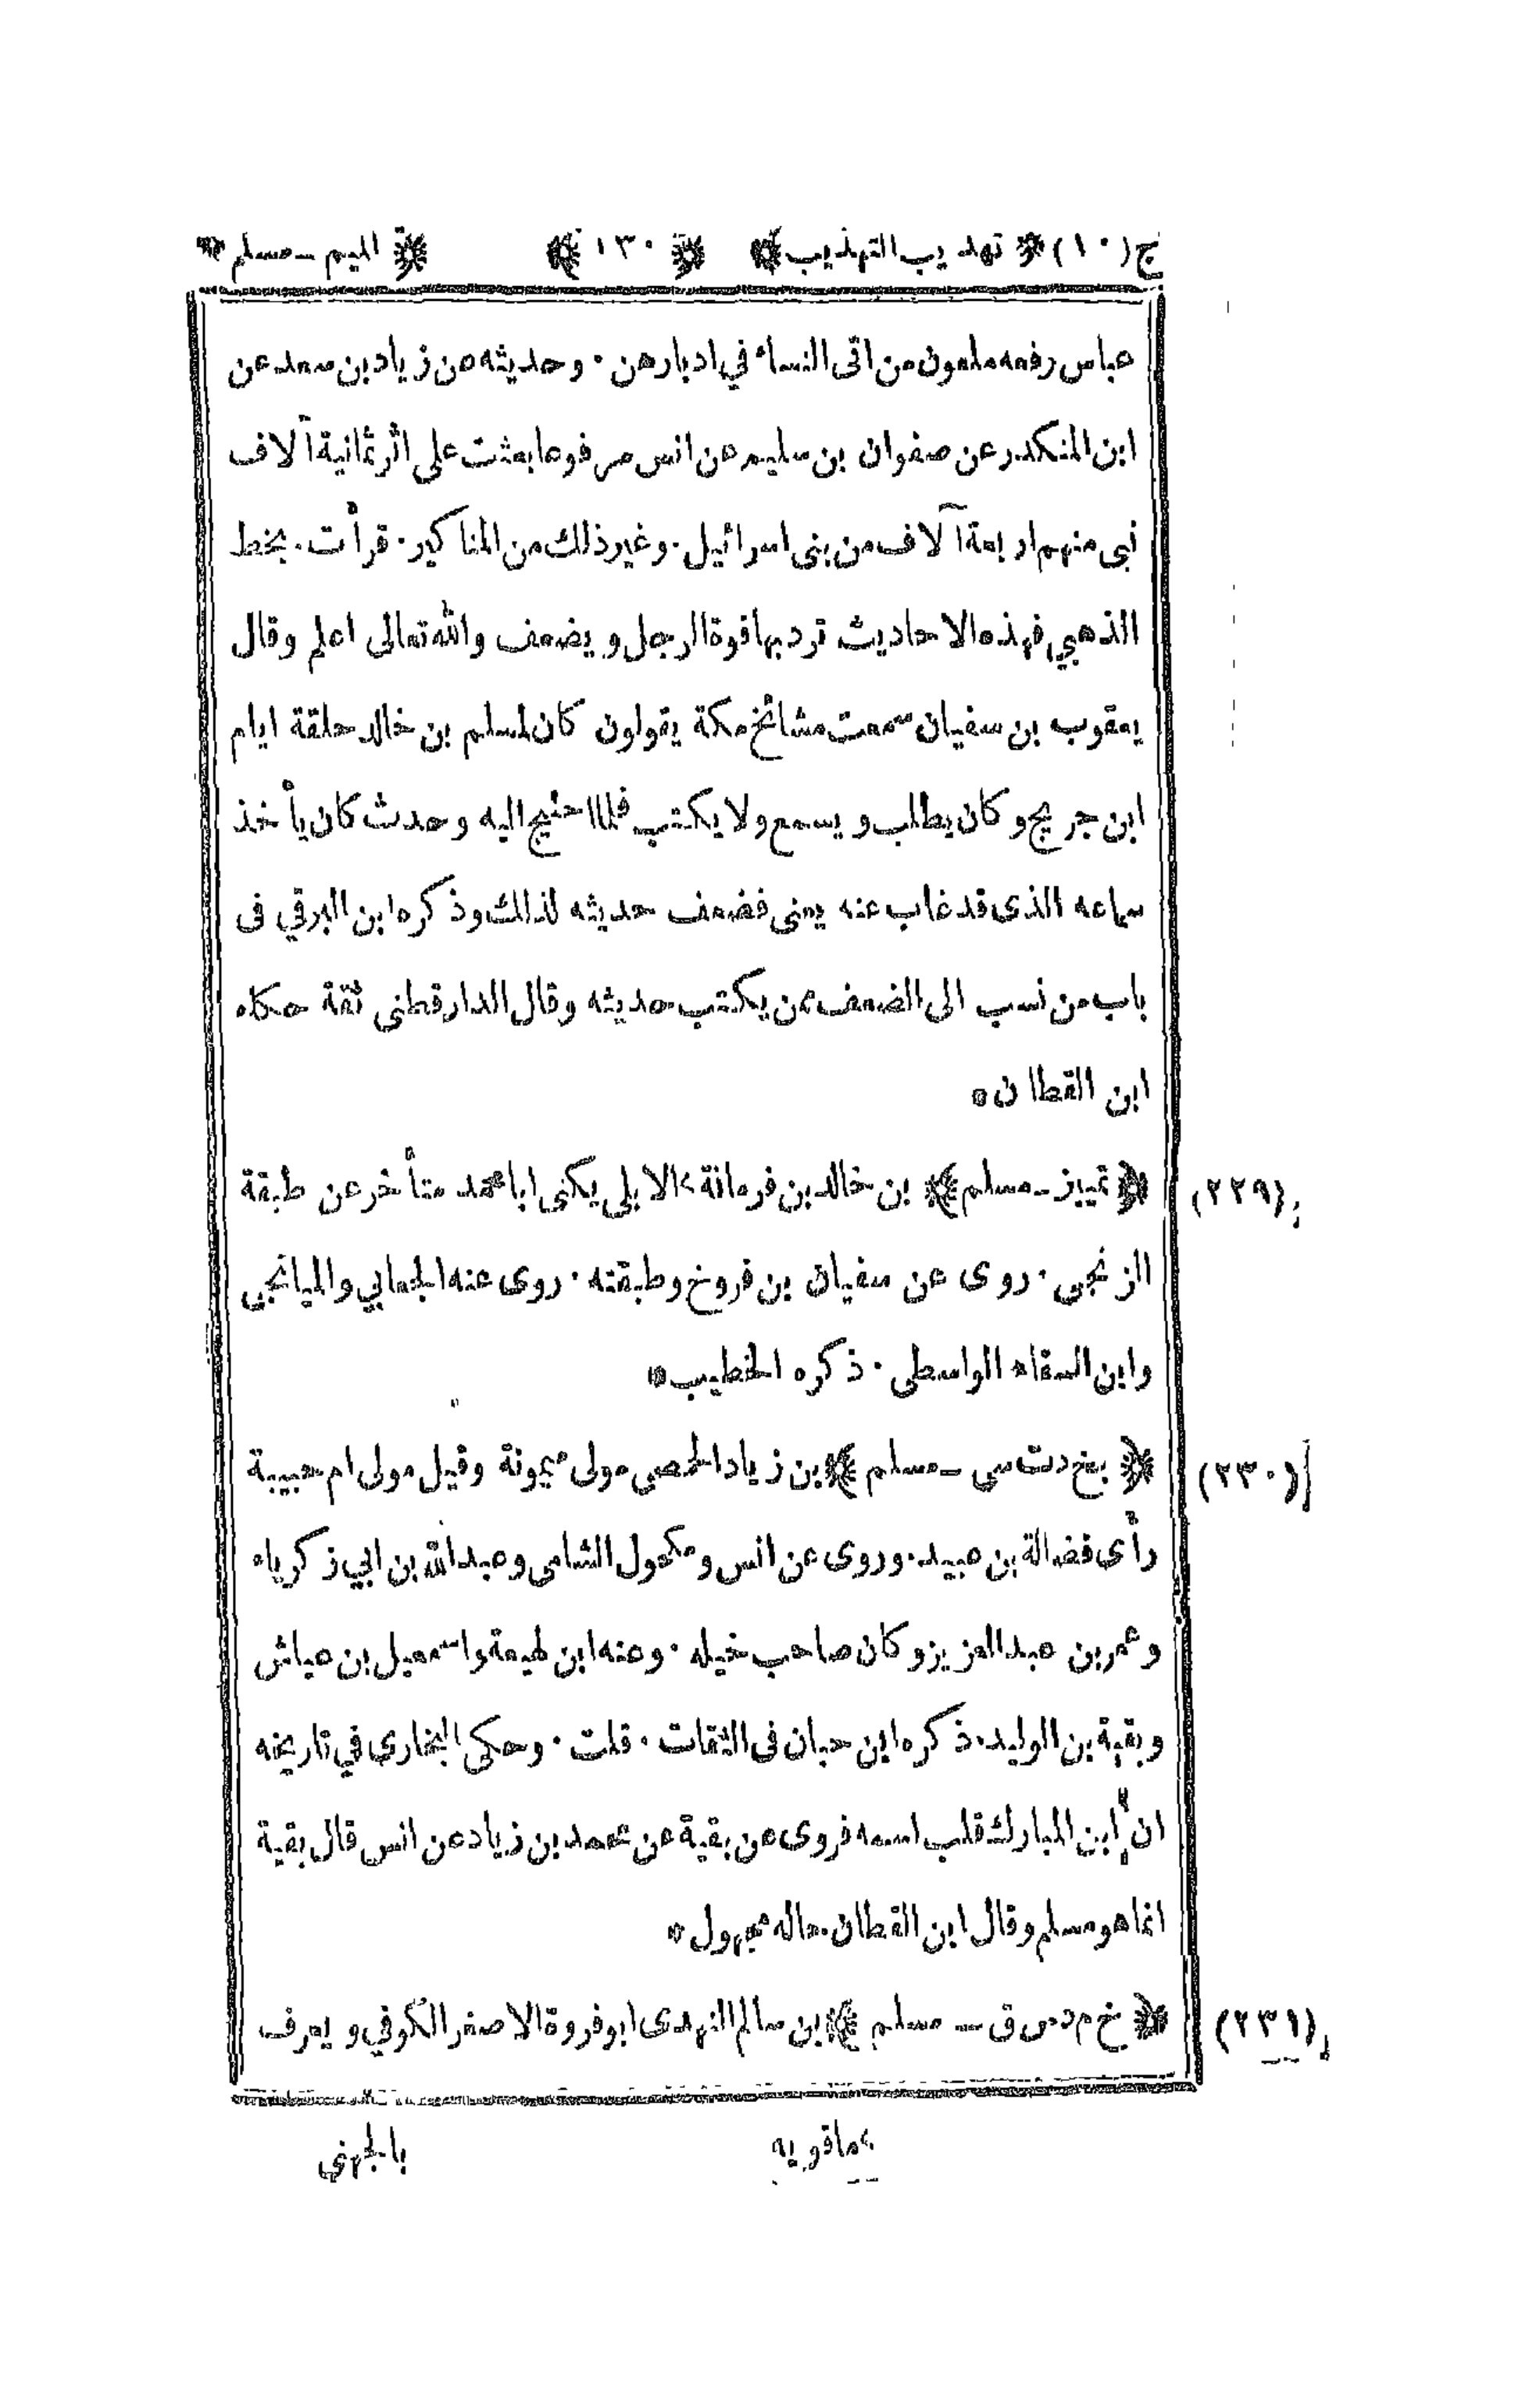 ج(١٠) ﴿ تهذيب التهذيب ﴾ ﴿ ١٣٠ ﴾ ﴿ الميم ـ مسلم ﴾
عباس رفعه ملعون من اتى النساء في ادبارهن · وحديثه عن زياد بن سعد عن
ابن المنكدر عن صفوان بن سليم عن انس مرفوعا بعثت على اثر ثمانية آلاف
نبى منهم اربعة آلاف من بنى اسرائيل · وغير ذلك من المناكير · قرأت · بخط
الذهبي فهذه الاحاديث ترد بها قوة الرجل ويضعف والله تعالى اعلم وقال
يعقوب بن سفيان سمعت مشائخ مكة يقولون كان لمسلم بن خالد حلقة ايام
ابن جريج وكان يطلب ويسمع ولا يكتب فلما احتيج اليه وحدث كان يأخذ
سماعه الذى قد غاب عنه يعنى فضعف حديثه لذلك وذكره ابن البرقي فى
باب من نسب الى الضعف ممن يكتب حديثه وقال الدارقطنى ثقة حكاه
ابن القطان *
(٢٢٩) ﴿ تمييز ـ مسلم ﴾ بن خالد بن فرمانة ٢ الابلى يكنى ابا محمد متأخر عن طبقة
الزنجى · روى عن سفيان بن فروخ وطبقته · روى عنه الجعابي والميانجى
وابن السقاء الواسطى · ذكره الخطيب *
(٢٣٠) ﴿ بخ دت سى ـ مسلم ﴾ بن زياد الحمصى مولى ميمونة وقيل مولى ام حبيبة
رأى فضالة بن عبيد · وروى عن انس ومكحول الشامى وعبدالله بن ابي زكرياء
وعمر بن عبدالعزيز وكان صاحب خيله · وعنه ابن لهيعة واسمعيل بن عياش
وبقية بن الوليد · ذكره ابن حبان فى الثقات · قلت · وحكى البخارى في تاريخه
ان ابن المبارك قلب اسمه فروى عن بقية عن محمد بن زياد عن انس قال بقية
انما هو مسلم وقال ابن القطان حاله مجهول *
(٢٣١) ﴿ خ م د س ق ـ مسلم ﴾ بن سالم النهدى ابو فروة الاصغر الكوفي ويعرف
بالجهنى